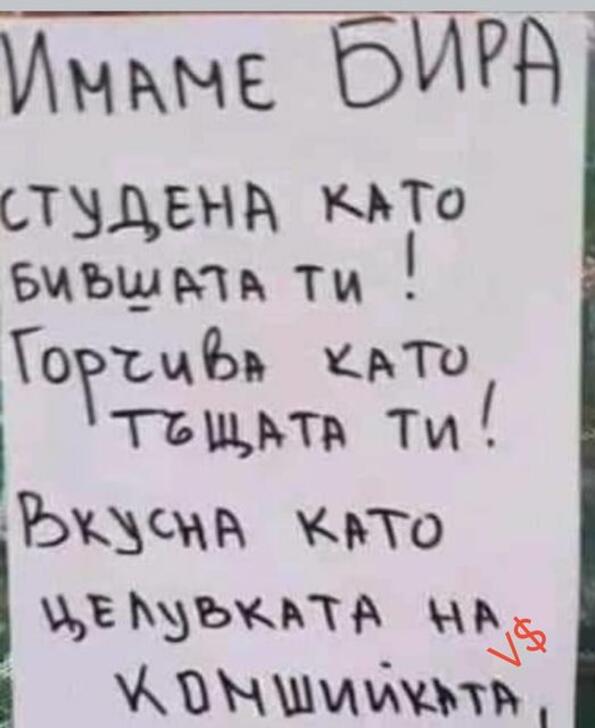 ИМАМЕ БИРА
СТУДЕНА КАТО
БИВШАТА ТИ!
ГОРЧИВА КАТО
ТЪЩАТА ТИ!
ВКУСНА КАТО
ЦЕЛУВКАТА НА
КОМШИЙКАТА,
V$